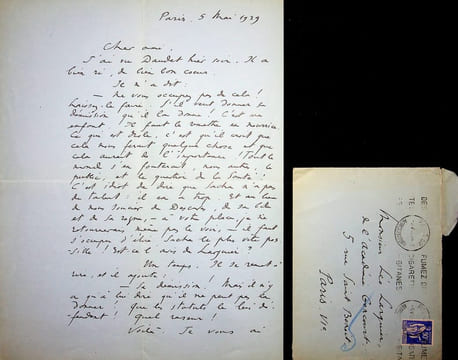 Paris, 5 Mai 1939
Cher ami,
J'ai vu Daudet hier soir. Il a
bien ri, de bon coeur.
Il m'a dit :
— Ne vous occupez pas de cela !
laissez-le faire. S'il veut donner sa
démission qu'il la donne ! C'est un
enfant. Il faut le remettre en nourrice.
Ce qui est drôle, c'est qu'il croit que
cela nous ferait quelque chose et que
cela aurait de l'importance ! Tout le
monde s'en foutrait, nous autres, le
public, et le quartier de la Santé !
C'est idiot de dire que Sacha n'a pas
de talent : il en a trop. Et au lieu
de nous
et de sa
— à votre place, je ne
retournerais même pas le voir, — il faut
s'occuper d'élire Sacha le plus vite pos-
sible ! Est-ce l'avis de Larguier ?
Un temps. Il se remit à
rire, et il ajouta :
— Sa démission ! Mais il n'y
a qu'à lui dire qu'il ne peut pas la
donner. Que les statuts le lui dé-
fendent ! Quel raseur !
Voilà. Je vous ai
Monsieur Léo Larguier
de l'Académie Goncourt
5 rue Saint Benoît
Paris VIe
FUMEZ
CIGARETTES
GITANES